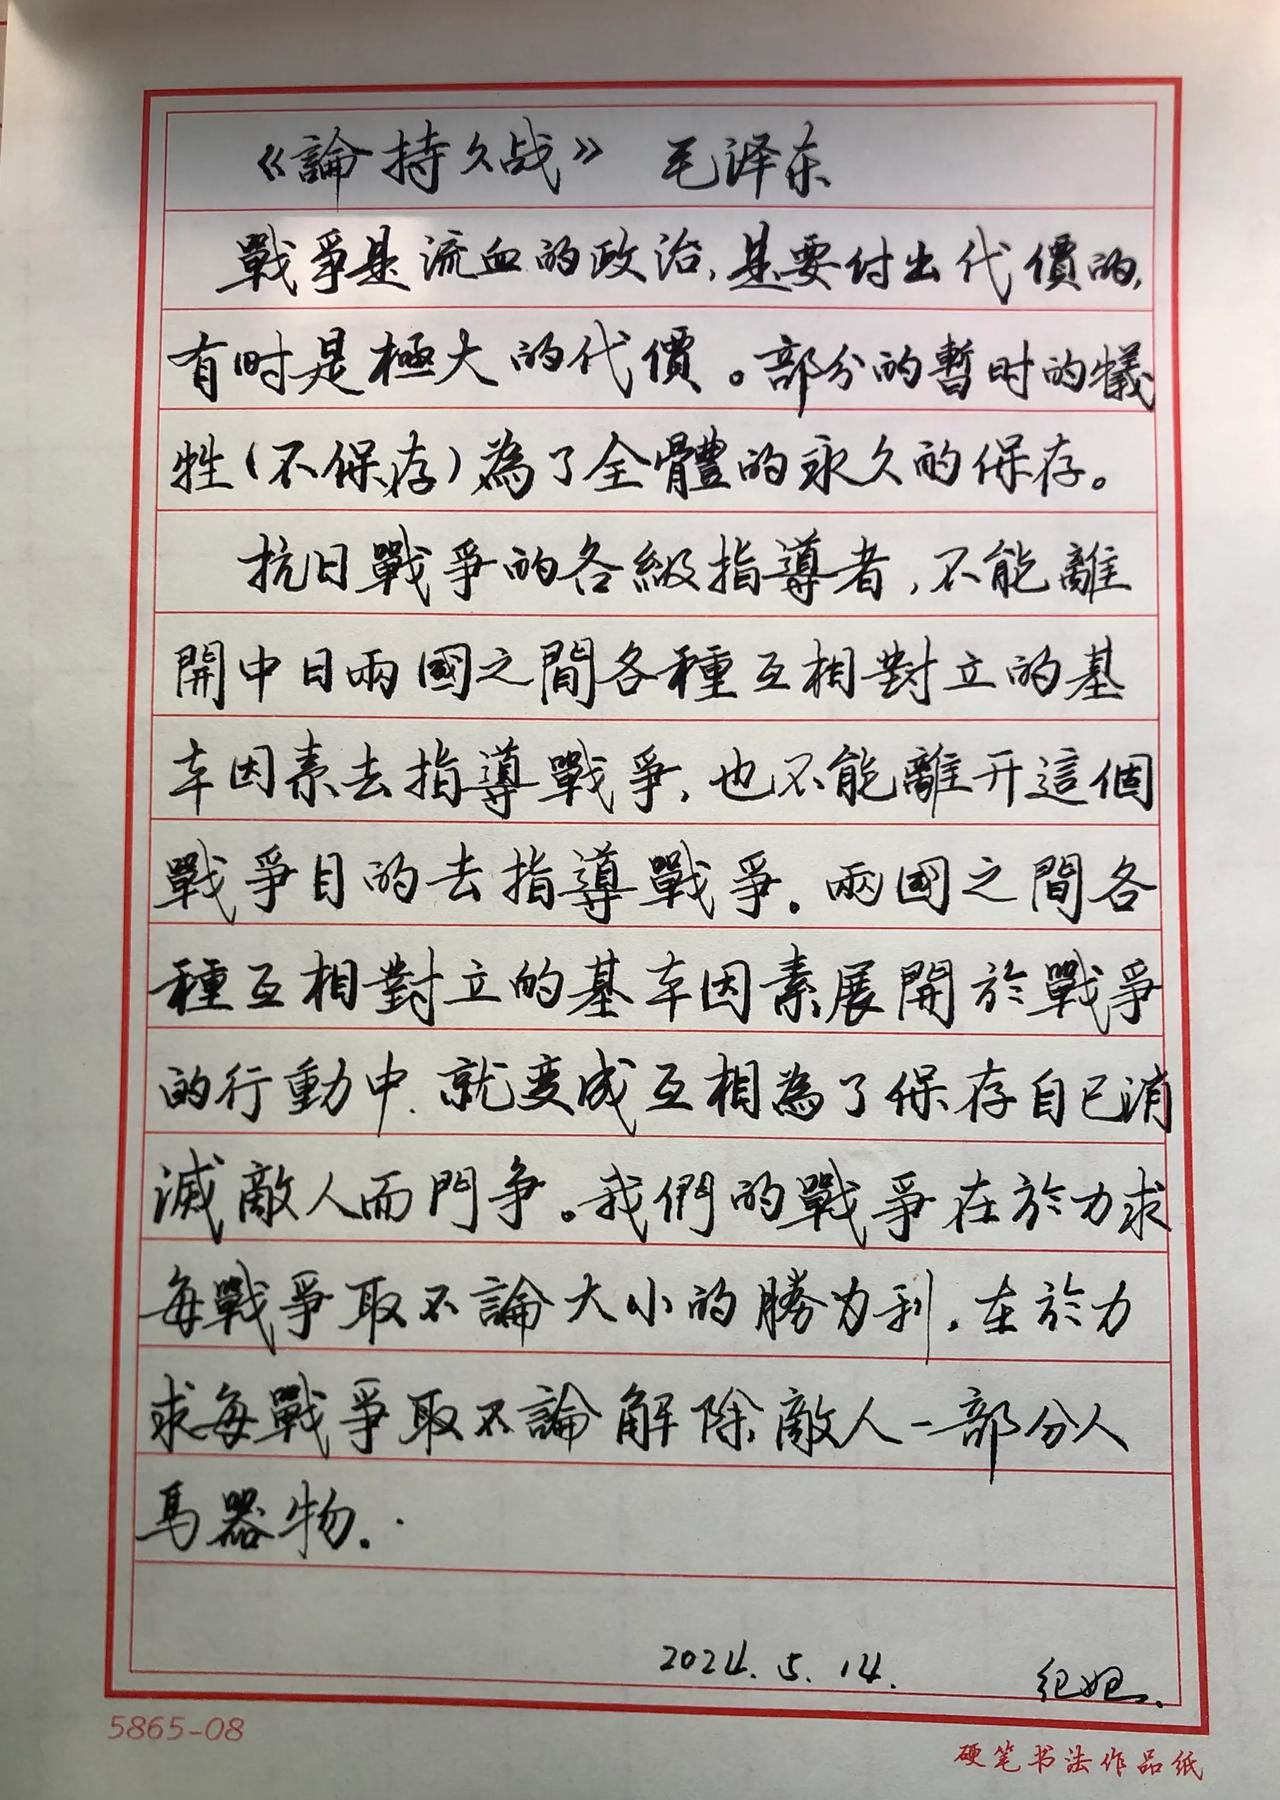 《論持久战》 毛泽东
戰爭是流血的政治,是要付出代價的,
有时是極大的代價。部分的暫时的犧
牲(不保存)為了全體的永久的保存。
抗日戰爭的各級指導者,不能離
開中日兩國之間各種互相對立的基
本因素去指導戰爭,也不能離开這個
戰爭目的去指導戰爭。兩國之間各
種互相對立的基本因素展開於戰爭
的行動中、就变成互相為了保存自己消
滅敵人而鬥争。我們的戰爭在於力求
每戰爭取不論大小的勝利,在於力
求每戰爭取不論解除敵人一部分人
馬器物。.
2024.5.14.
5865-08
硬笔书法作品纸